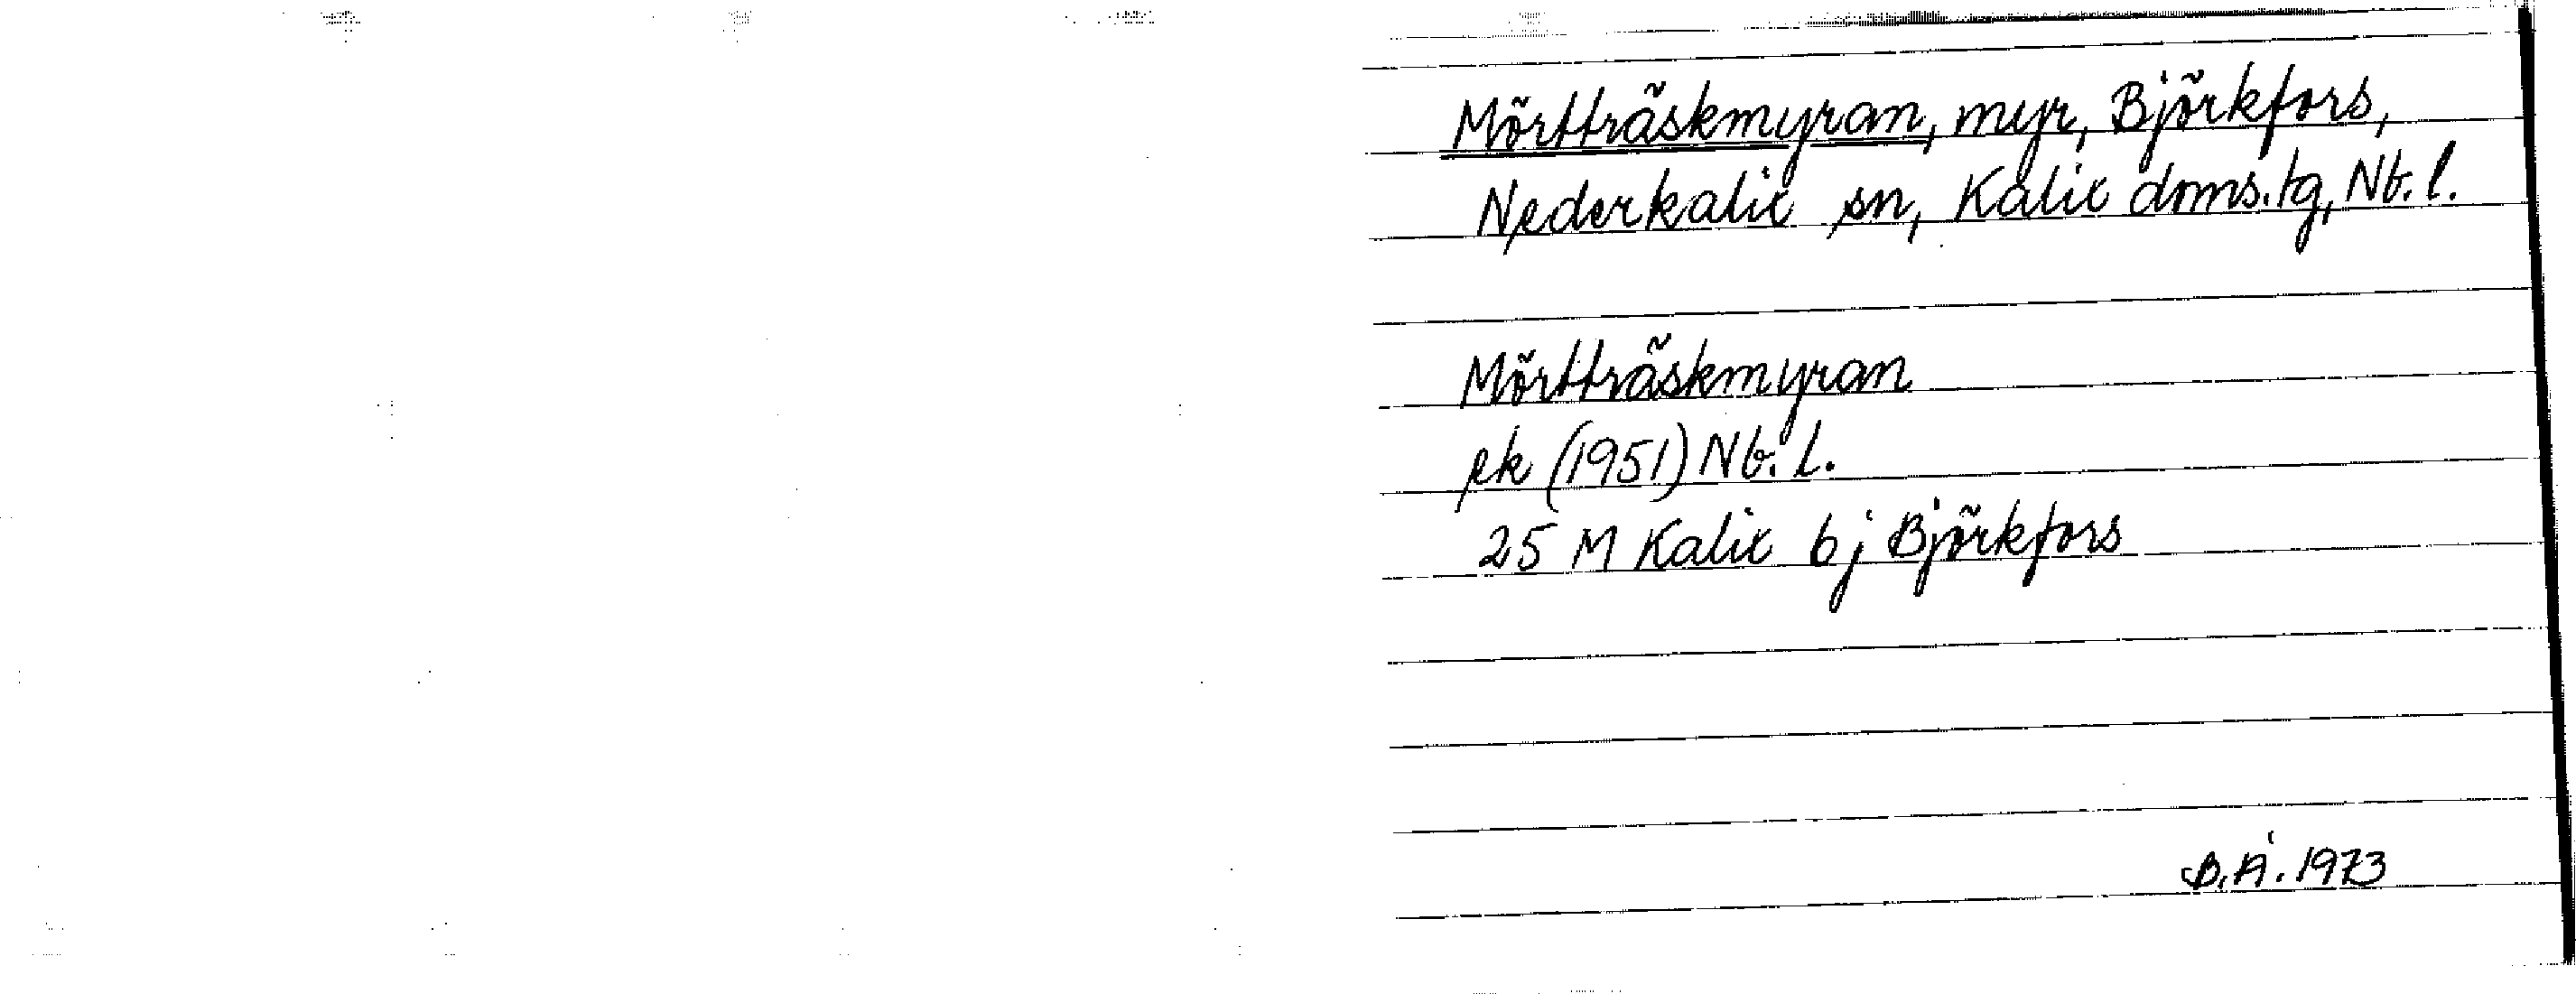 Mörtträskmyran, myr, Björkfors,
Nederkalix sn, Kalix doms.tg, Nb.l.
Mörtträskmyran
ek (1951) Nb.l.
25 M Kalix 6j Björkfors
B.Å. 1973